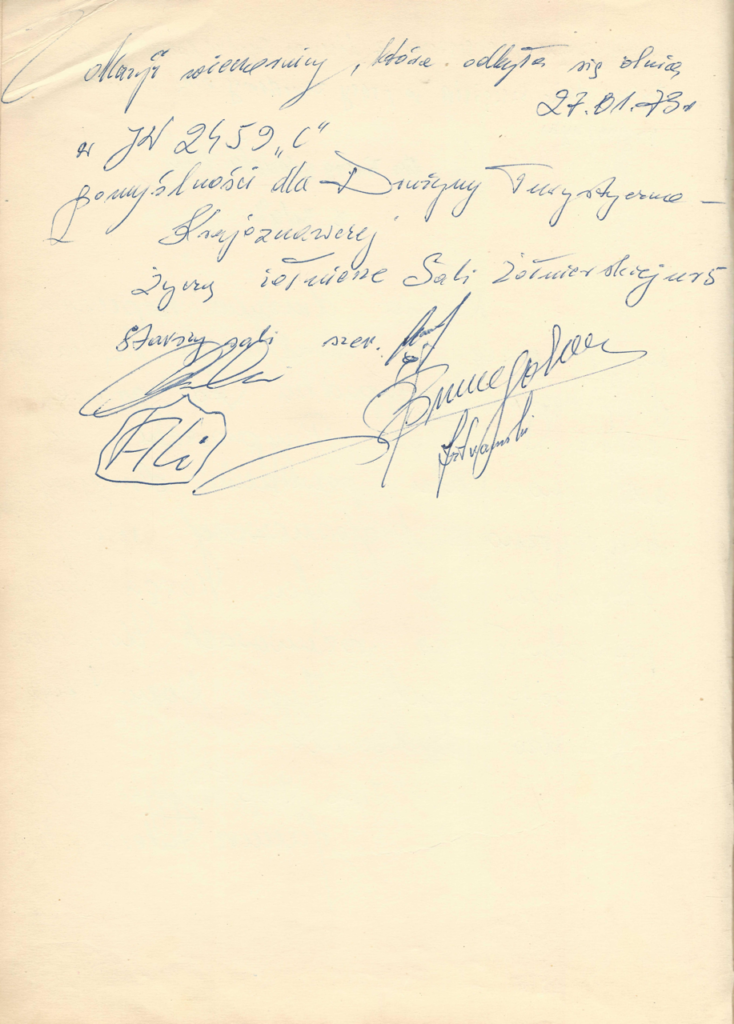 okazji wieczornicy, która odbyła się dnia
27.01.73r
w JW 2459 „C"
pomyślności dla Drużyny Turystyczno –
Krajoznawczej
życzą żołnierze Sali Żołnierskiej nr 5
Starszy sali szer.